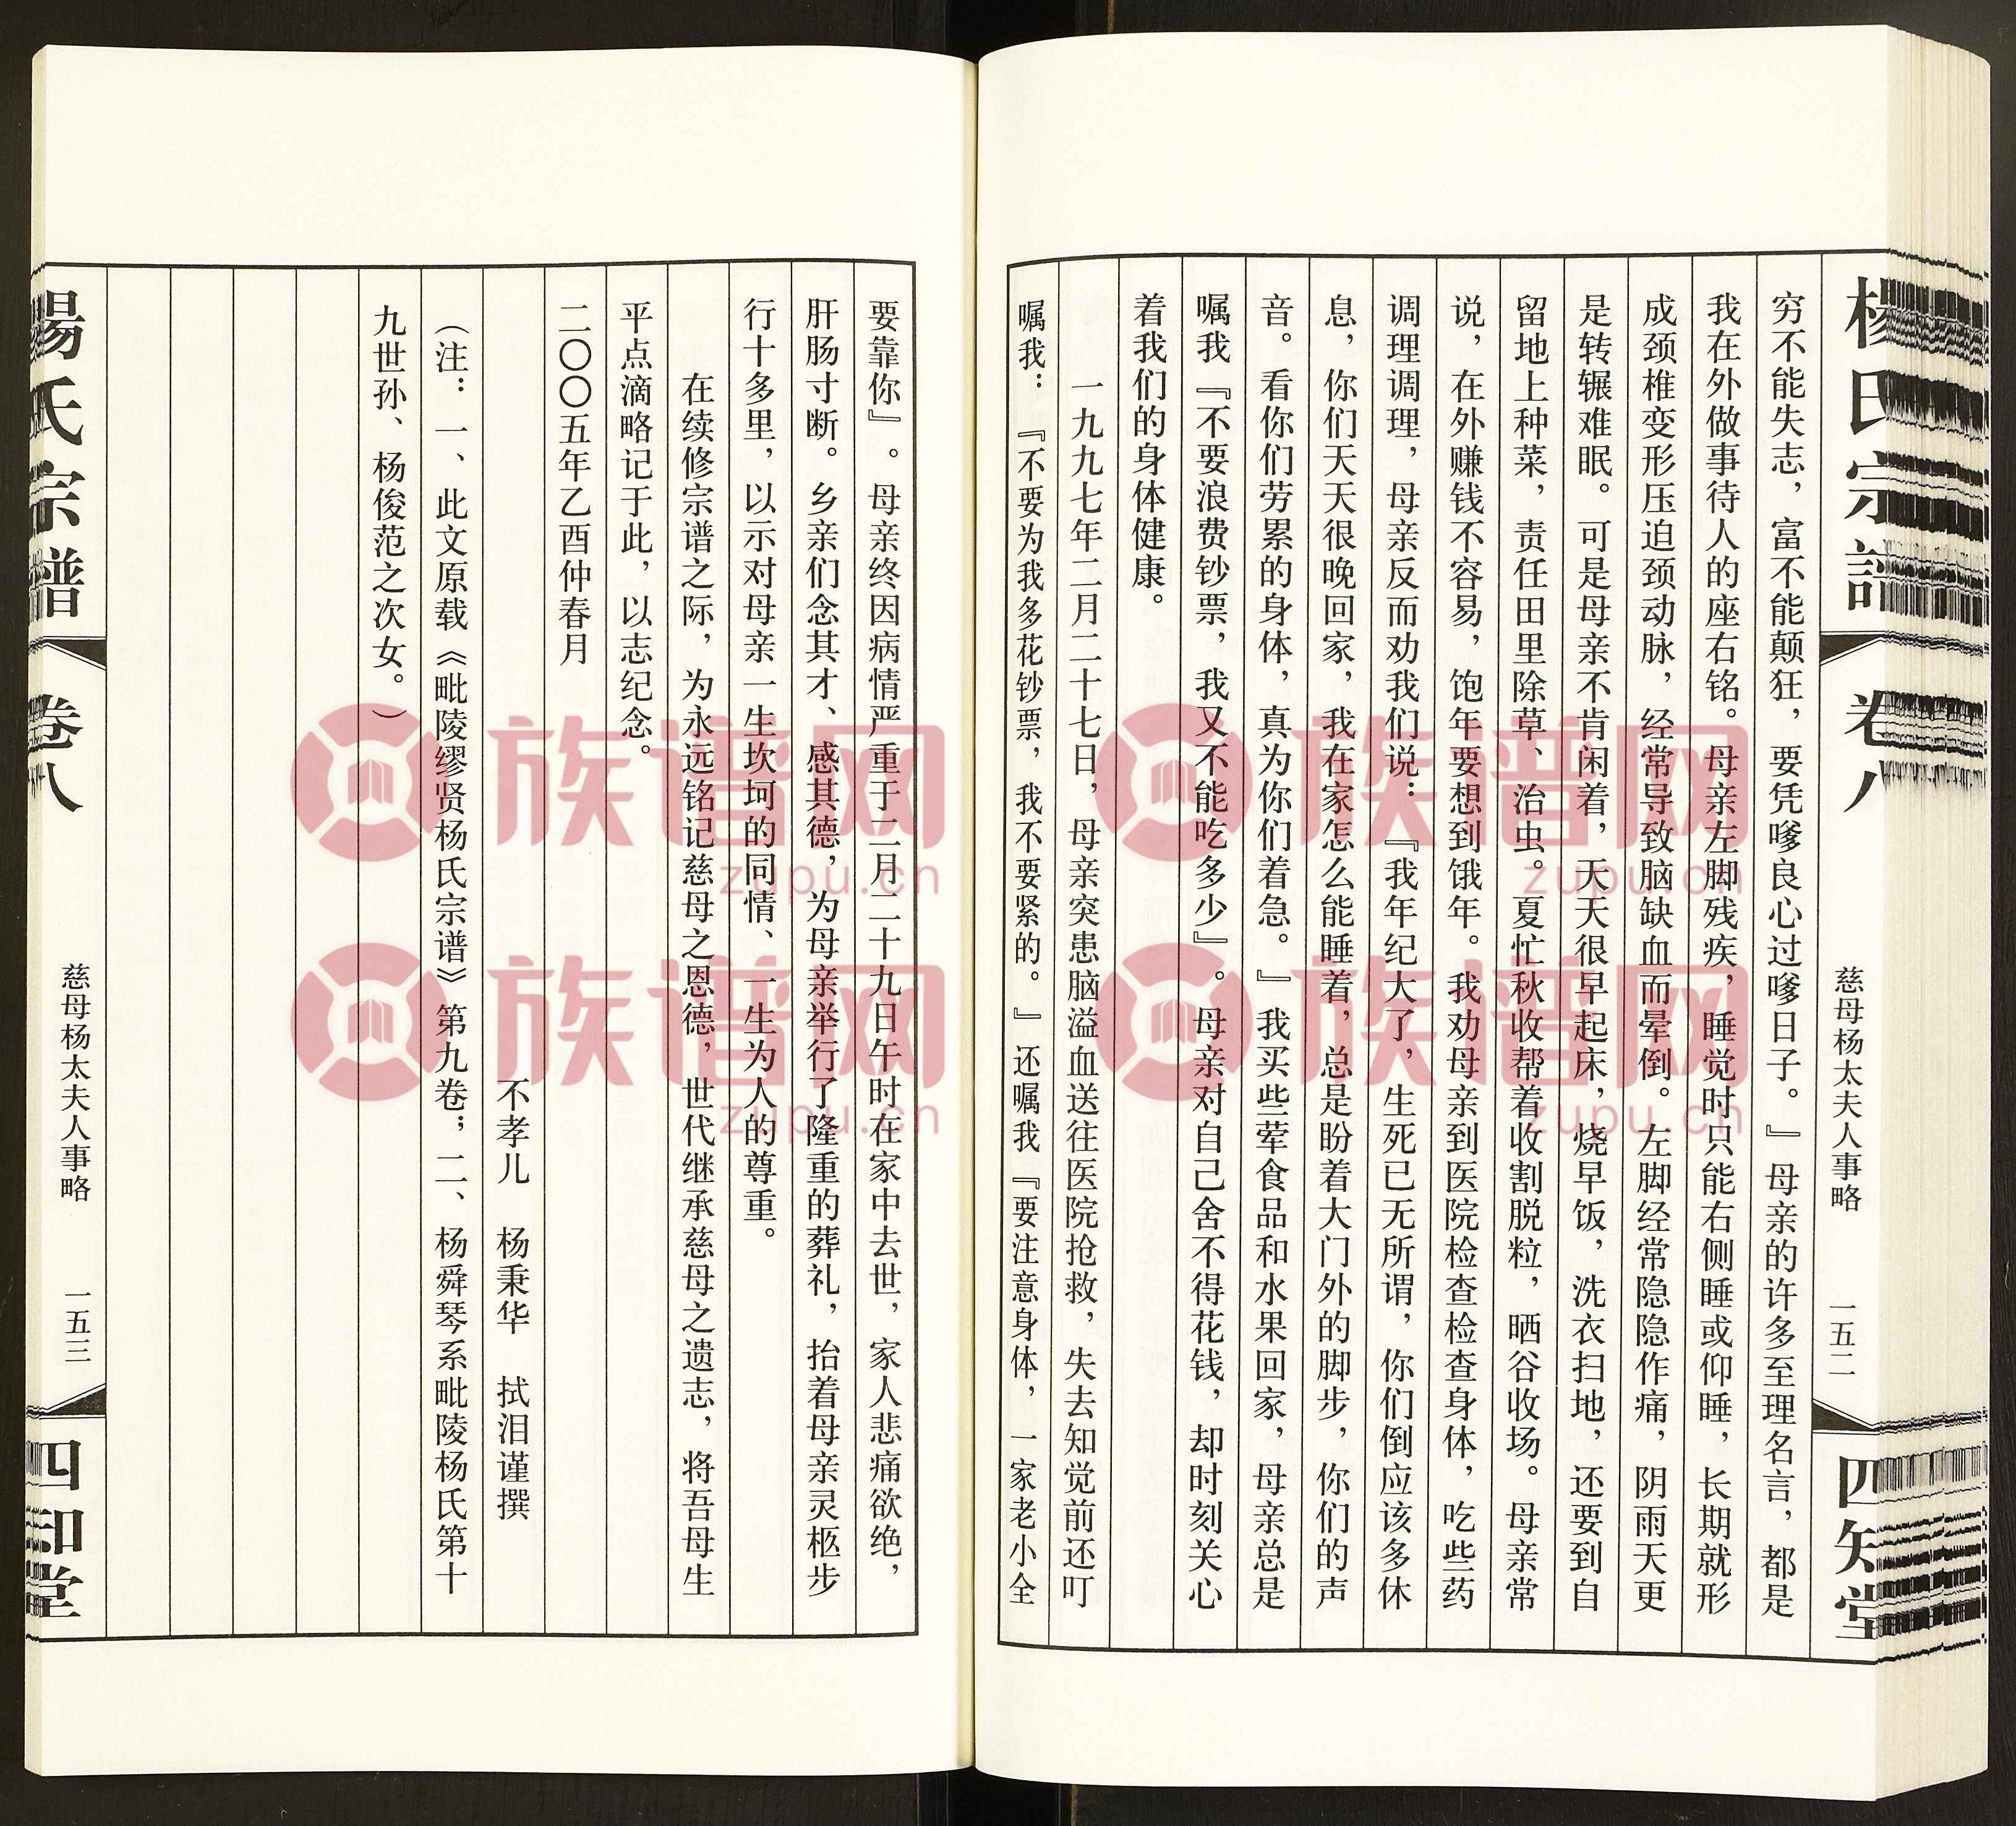 楊氏宗譜
卷八
慈母杨太夫人事略
一五二
四知堂
穷不能失志，富不能颠狂，要凭嗲良心过嗲日子。』母亲的许多至理名言，都是
我在外做事待人的座右铭。母亲左脚残疾，睡觉时只能右侧睡或仰睡，长期就形
成颈椎变形压迫颈动脉，经常导致脑缺血而晕倒。左脚经常隐隐作痛，阴雨天更
是转辗难眠。可是母亲不肯闲着，天天很早起床，烧早饭，洗衣扫地，还要到自
留地上种菜，责任田里除草、治虫。夏忙秋收帮着收割脱粒，晒谷收场。母亲常
说，在外赚钱不容易，饱年要想到饿年。我劝母亲到医院检查检查身体，吃些药
调理调理，母亲反而劝我们说：『我年纪大了，生死已无所谓，你们倒应该多休
息，你们天天很晚回家，我在家怎么能睡着，总是盼着大门外的脚步，你们的声
音。看你们劳累的身体，真为你们着急。』我买些荤食品和水果回家，母亲总是
嘱我『不要浪费钞票，我又不能吃多少』。母亲对自己舍不得花钱，却时刻关心
着我们的身体健康。
一九九七年二月二十七日，母亲突患脑溢血送往医院抢救，失去知觉前还叮
嘱我：『不要为我多花钞票，我不要紧的。』还嘱我『要注意身体，一家老小全
要靠你』。母亲终因病情严重于二月二十九日午时在家中去世，家人悲痛欲绝，
肝肠寸断。乡亲们念其才、感其德，为母亲举行了隆重的葬礼，抬着母亲灵柩步
行十多里，以示对母亲一生坎坷的同情、一生为人的尊重。
在续修宗谱之际，为永远铭记慈母之恩德，世代继承慈母之遗志，将吾母生
平点滴略记于此，以志纪念。
二〇〇五年乙酉仲春月
不孝儿　杨秉华　拭泪谨撰
（注：一、此文原载《毗陵缪贤杨氏宗谱》第九卷；二、杨舜琴系毗陵杨氏第十
九世孙、杨俊范之次女。）
楊氏宗譜
卷八
慈母杨太夫人事略
一五三
四知堂
族谱网
zupu.cn
族谱网
zupu.cn
族谱网
zupu.cn
族谱网
zupu.cn